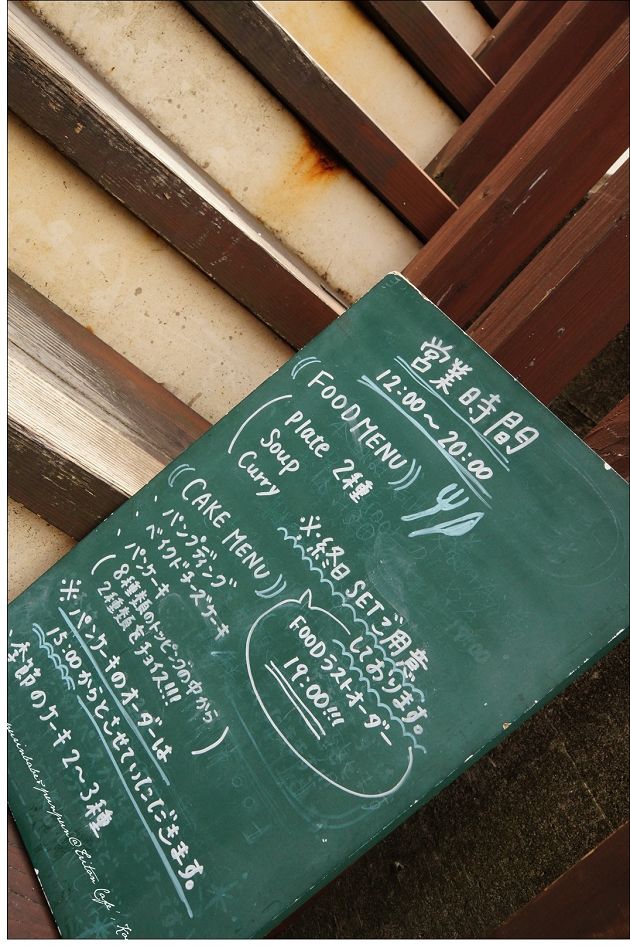 営業時間
12:00～20:00
FOOD MENU
Plate 2種
Soup
Curry
※終日SETご用意
しております。
FOODラストオーダー
19:00!!!
CAKE MENU
、パンプディング
、ベイクドチーズケーキ
、パンケーキ
(8種類のトッピングの中から
2種類をチョイス!!!)
※パンケーキのオーダーは
15:00からとさせていただきます。
、季節のケーキ 2～3種
Cafe